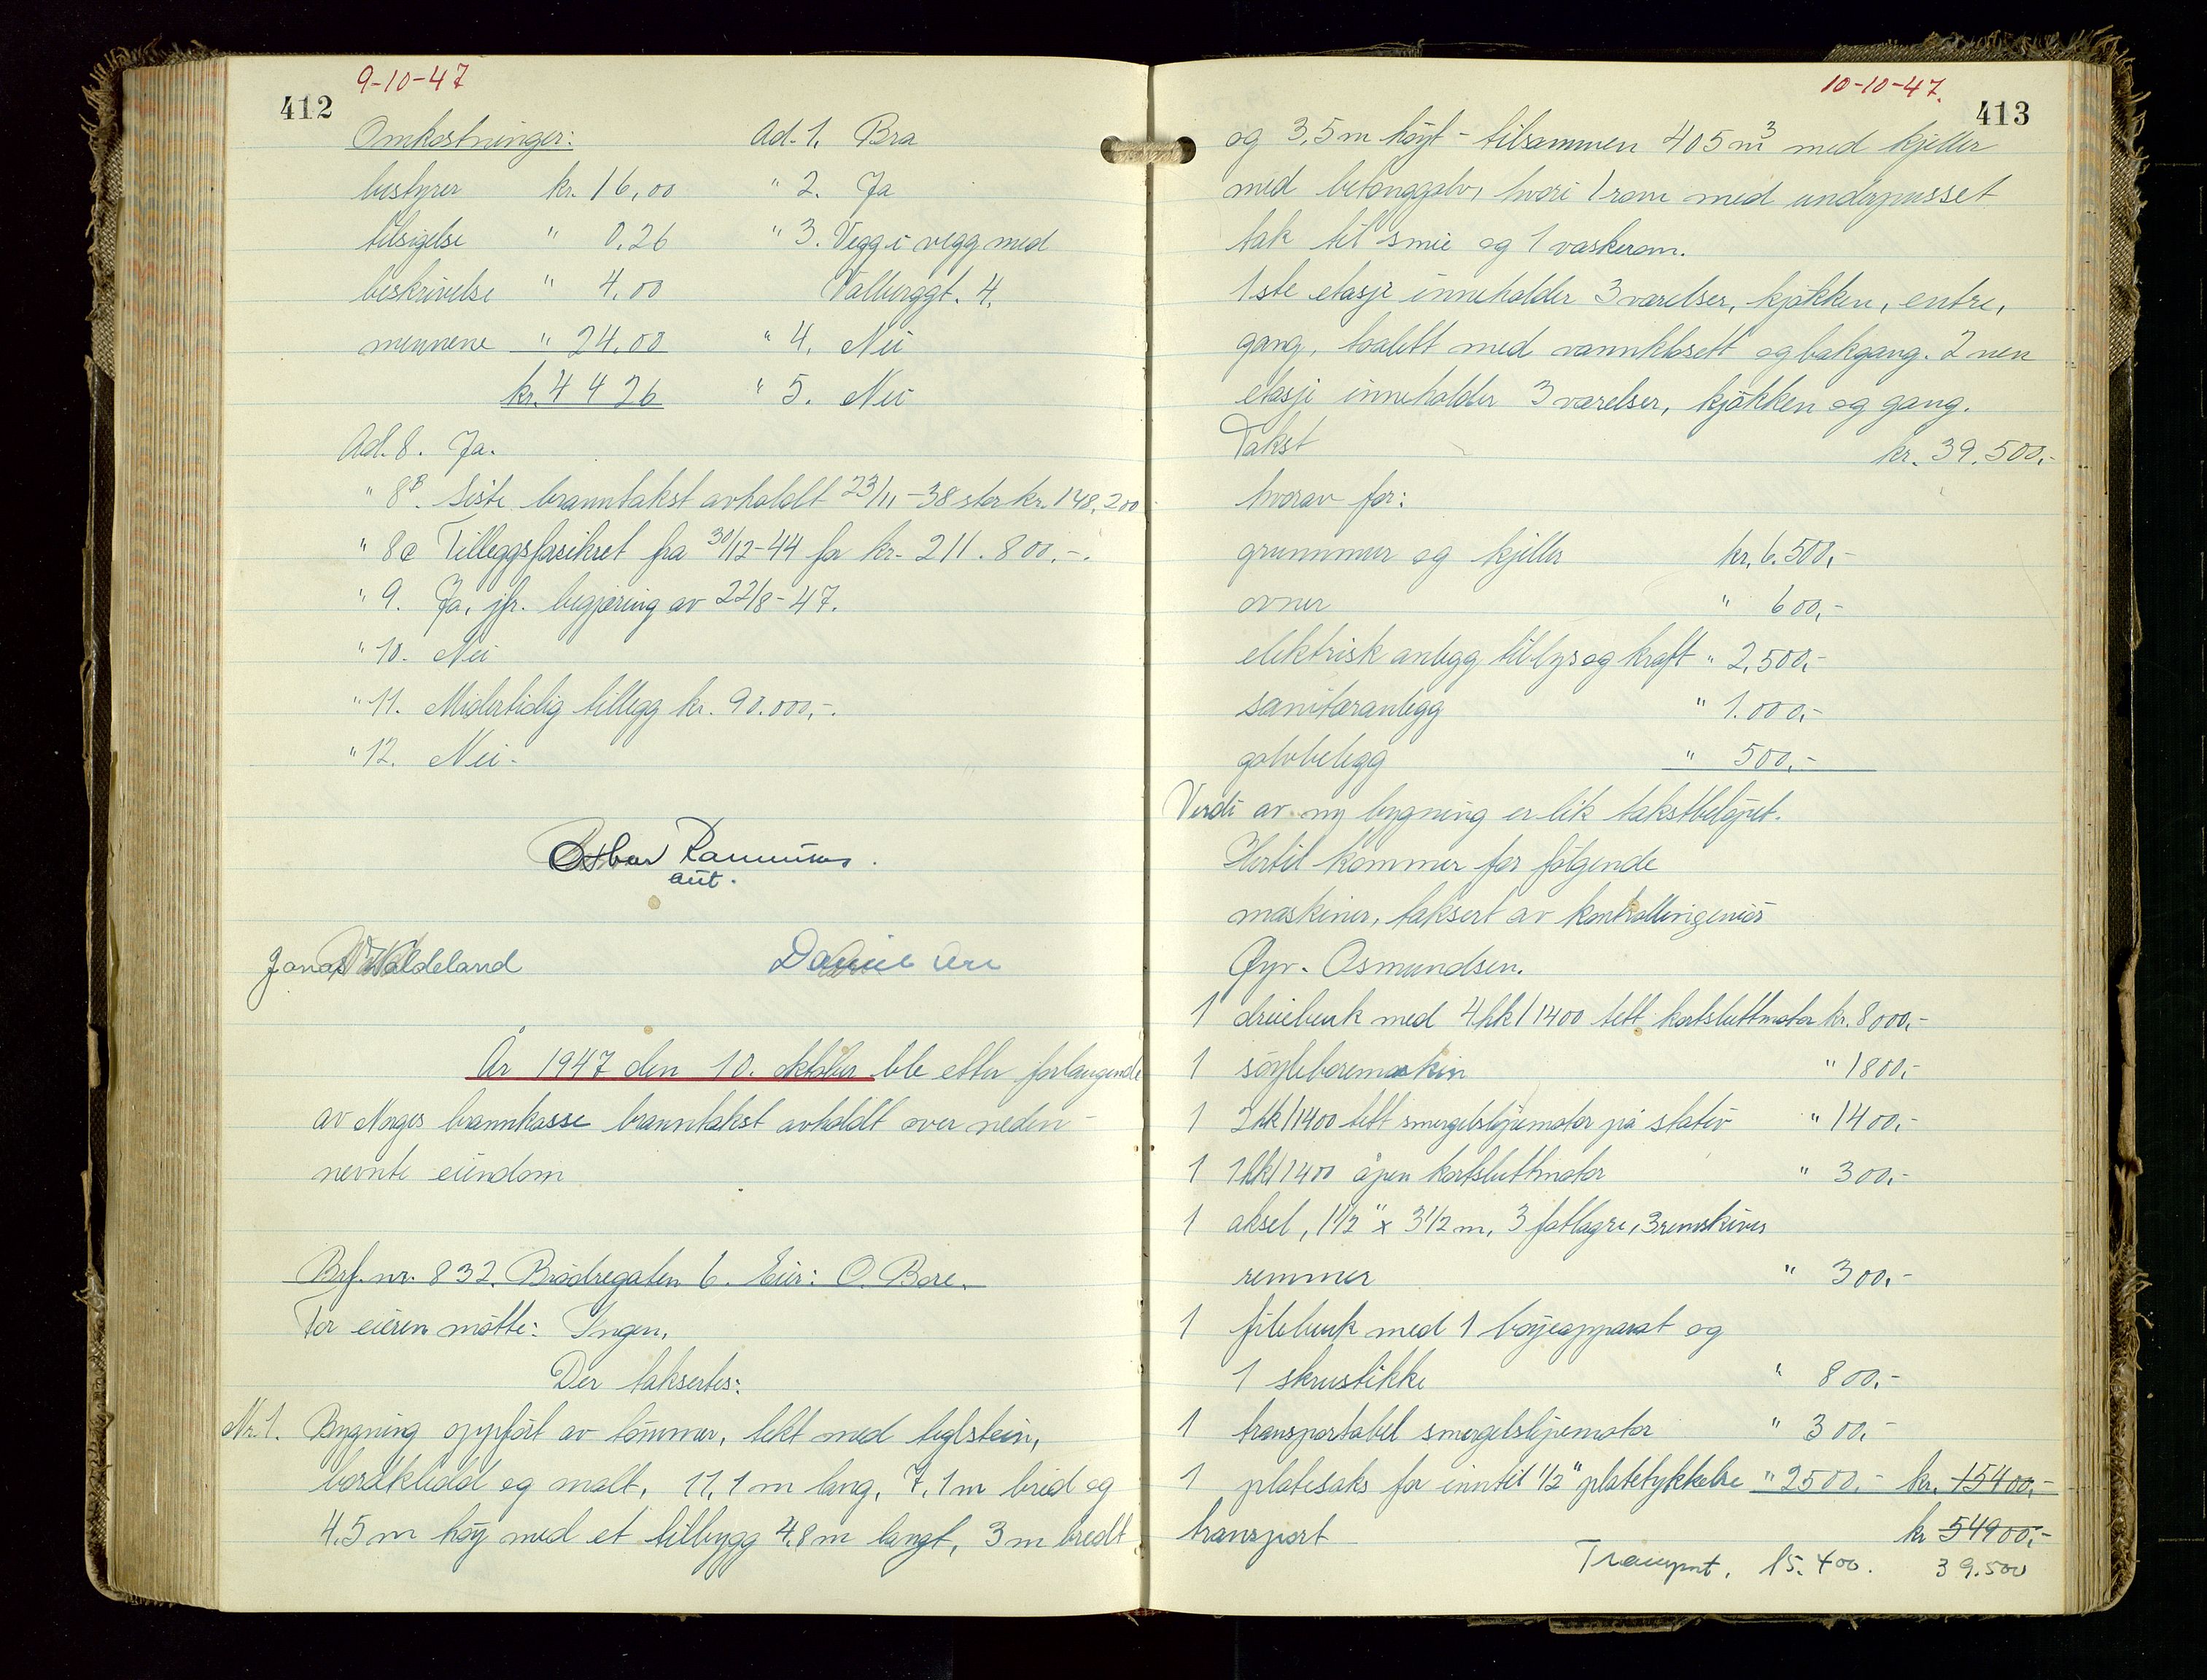 9-10-47
412
Omkostninger:
bestyrer kr. 16,00
tilsigelse " 0.26
beskrivelse " 4.00
mennene " 24.00
kr. 44 26
Ad. 1. Bra
" 2. Ja
" 3. Vegg i vegg med
Valberggt. 4.
" 4. Nei
" 5. Nei
Ad. 8. Ja.
" 8B. Siste branntakst avholdt 23/11-38 stor kr. 148,200
" 8c Tilleggsforsikret fra 30/12-44 for kr. 211.800.-.
" 9. Ja, jfr. begjæring av 22/8-47.
" 10. Nei
" 11. Midlertidig tillegg kr. 90.000,-.
" 12. Nei-
Rasmussen.
aut.
Jonas Waldeland
Daniel Are
År 1947 den 10. oktober ble etter forlangende
av Norges brannkasse branntakst avholdt over neden-
nevnte eiendom
Brf. nr. 832. Brödregaten 6. Eier: O. Bore.
For eieren mötte: Ingen.
Der taksertes:
Nr. 1. Bygning oppfört av tömmer, tekt med teglstein,
bordkledd og malt, 11,1 m lang, 7,1 m bred og
4,5 m höy med et tilbygg 4,8 m langt, 3 m bredt
10-10-47.
413
og 3,5 m höyt - tilsammen 405 m3 med kjeller
med betonggolv, hvori 1 rom med underpusset
tak til smie og 1 vaskerom.
1ste etasje inneholder 3 værelser, kjökken, entre,
gang, toalett med vannklosett og bakgang. 2nen
etasje inneholder 3 værelser, kjökken og gang.
Takst kr. 39.500,-
hvorav for:
grunnmur og kjeller kr. 6.500,-
ovner " 600,-
elektrisk anlegg til lys og kraft " 2,500,-
sanitæranlegg " 1.000,-
golvbelegg " 500,-
Verdi av ny bygning er lik takstbelöpet.
Hertil kommer for fölgende
maskiner, taksert av kontrollingeniör
Gyv. Osmundsen.
1 dreiebenk med 4hk/1400 tett kortsluttmotor kr. 8000,-
1 söyleboremaskin " 1800,-
1 2hk/1400 tett smergelslipemotor på stativ " 1400,-
1 1hk/1400 åpen kortsluttmotor " 300,-
1 aksel, 1 1/2" x 3 1/2 m, 3 fotlagre, 3 remskiver
remmer " 300,-
1 filebenk med 1 böyeapparat og
1 skrustikke " 800,-
1 transportabel smergelslipemotor " 300,-
1 platesaks for inntil 1/2" platetykkelse " 2500,- kr. 15400,-
transport kr 54900,-
Transport. 15.400. 39.500